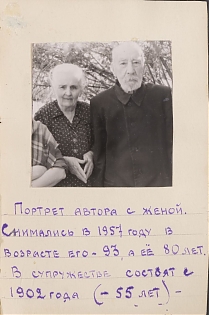 Портрет автора с женой.
Снимались в 1957 году в
возрасте его - 93, а её 80 лет.
В супружестве состоят с
1902 года (- 55 лет) -